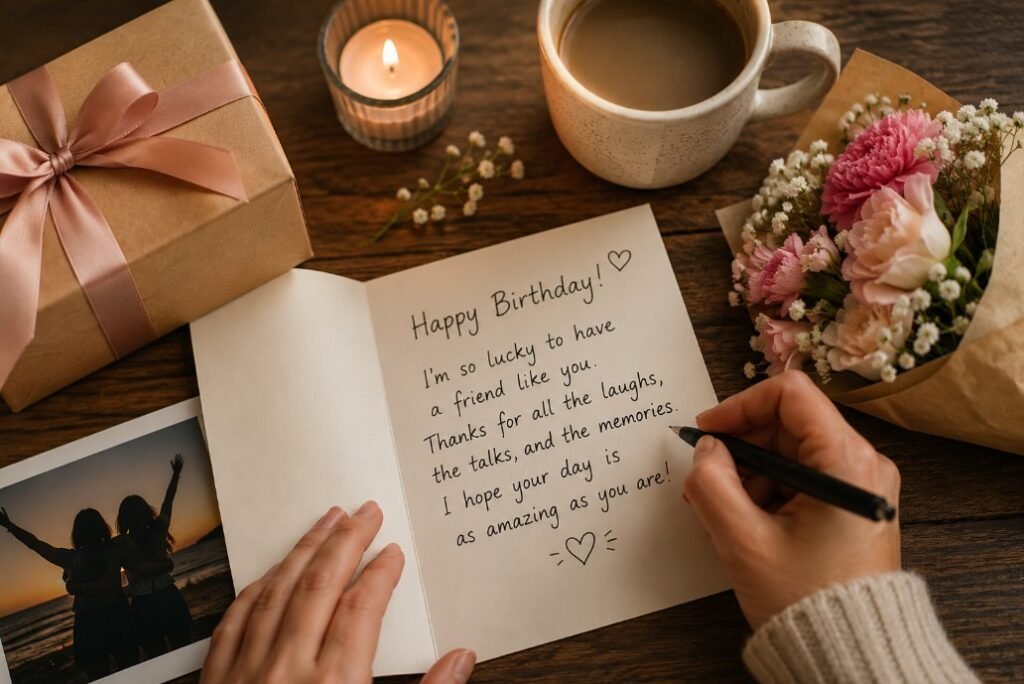 Happy Birthday!
I'm so lucky to have
a friend like you.
Thanks for all the laughs,
the talks, and the memories.
I hope your day is
as amazing as you are!